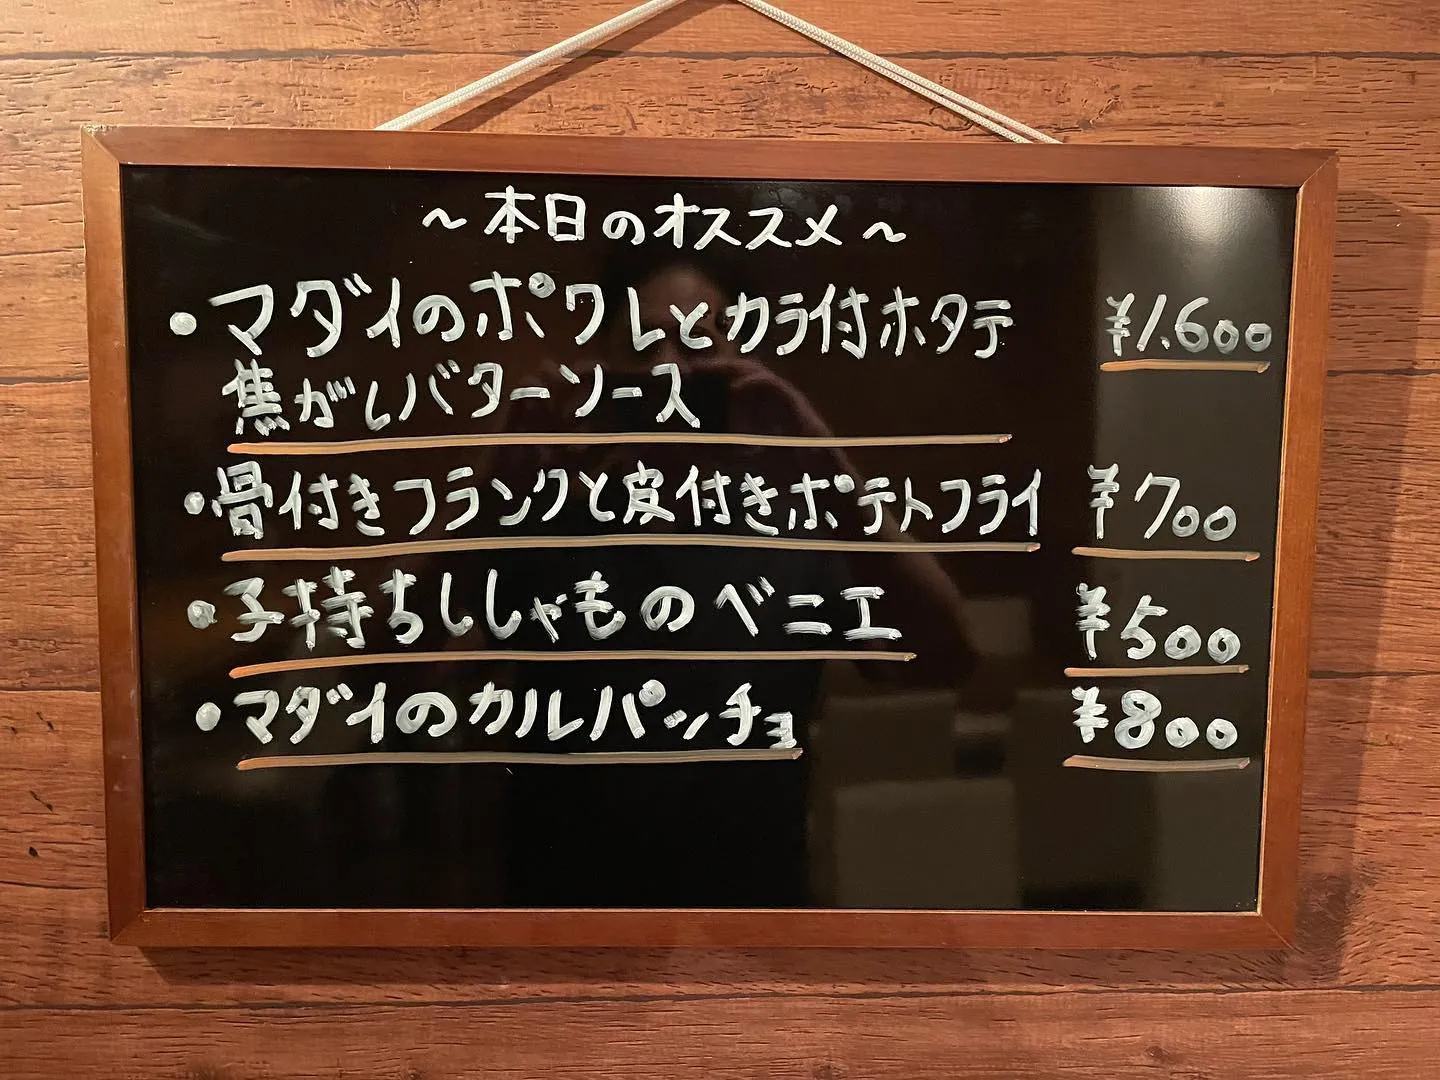 ～本日のオススメ～
・マダイのポワレとカラ付ホタテ ¥1.600
焦がしバターソース
・骨付きフランクと皮付きポテトフライ ¥700
・子持ちししゃものベニエ ¥500
・マダイのカルパッチョ ¥800